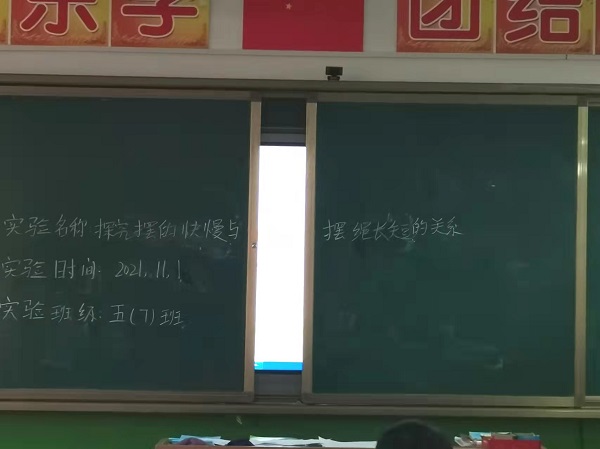 乐学
团结
实验名称 探究摆的快慢与摆绳长短的关系
实验时间: 2021.11.1
实验班级: 五(7)班